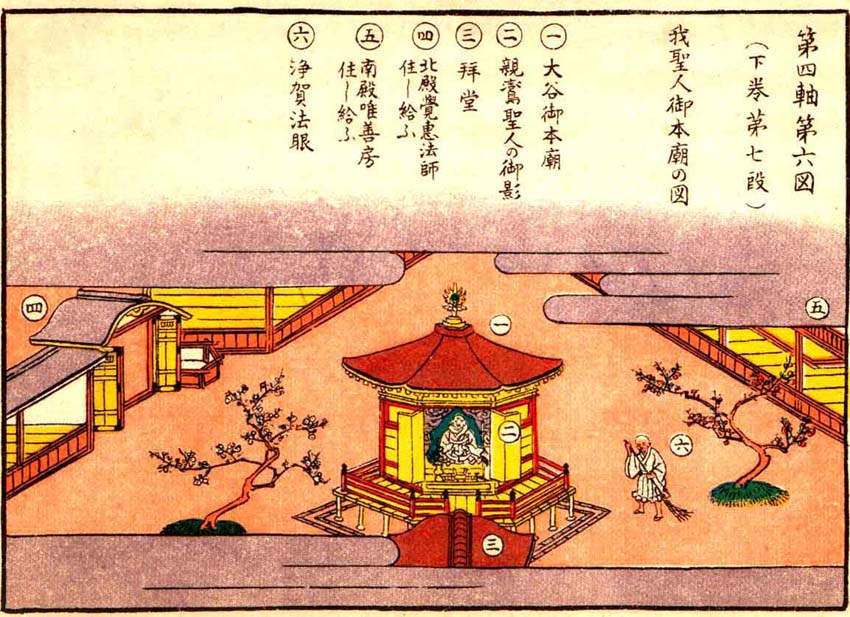 第四軸第六図
（下巻第七段）
我聖人御本廟の図
一 大谷御本廟
二 親鸞聖人の御影
三 拝堂
四 北殿覺恵法師
住し給ふ
五 南殿唯善房
住し給ふ
六 浄賀法眼
四
一
五
二
六
三